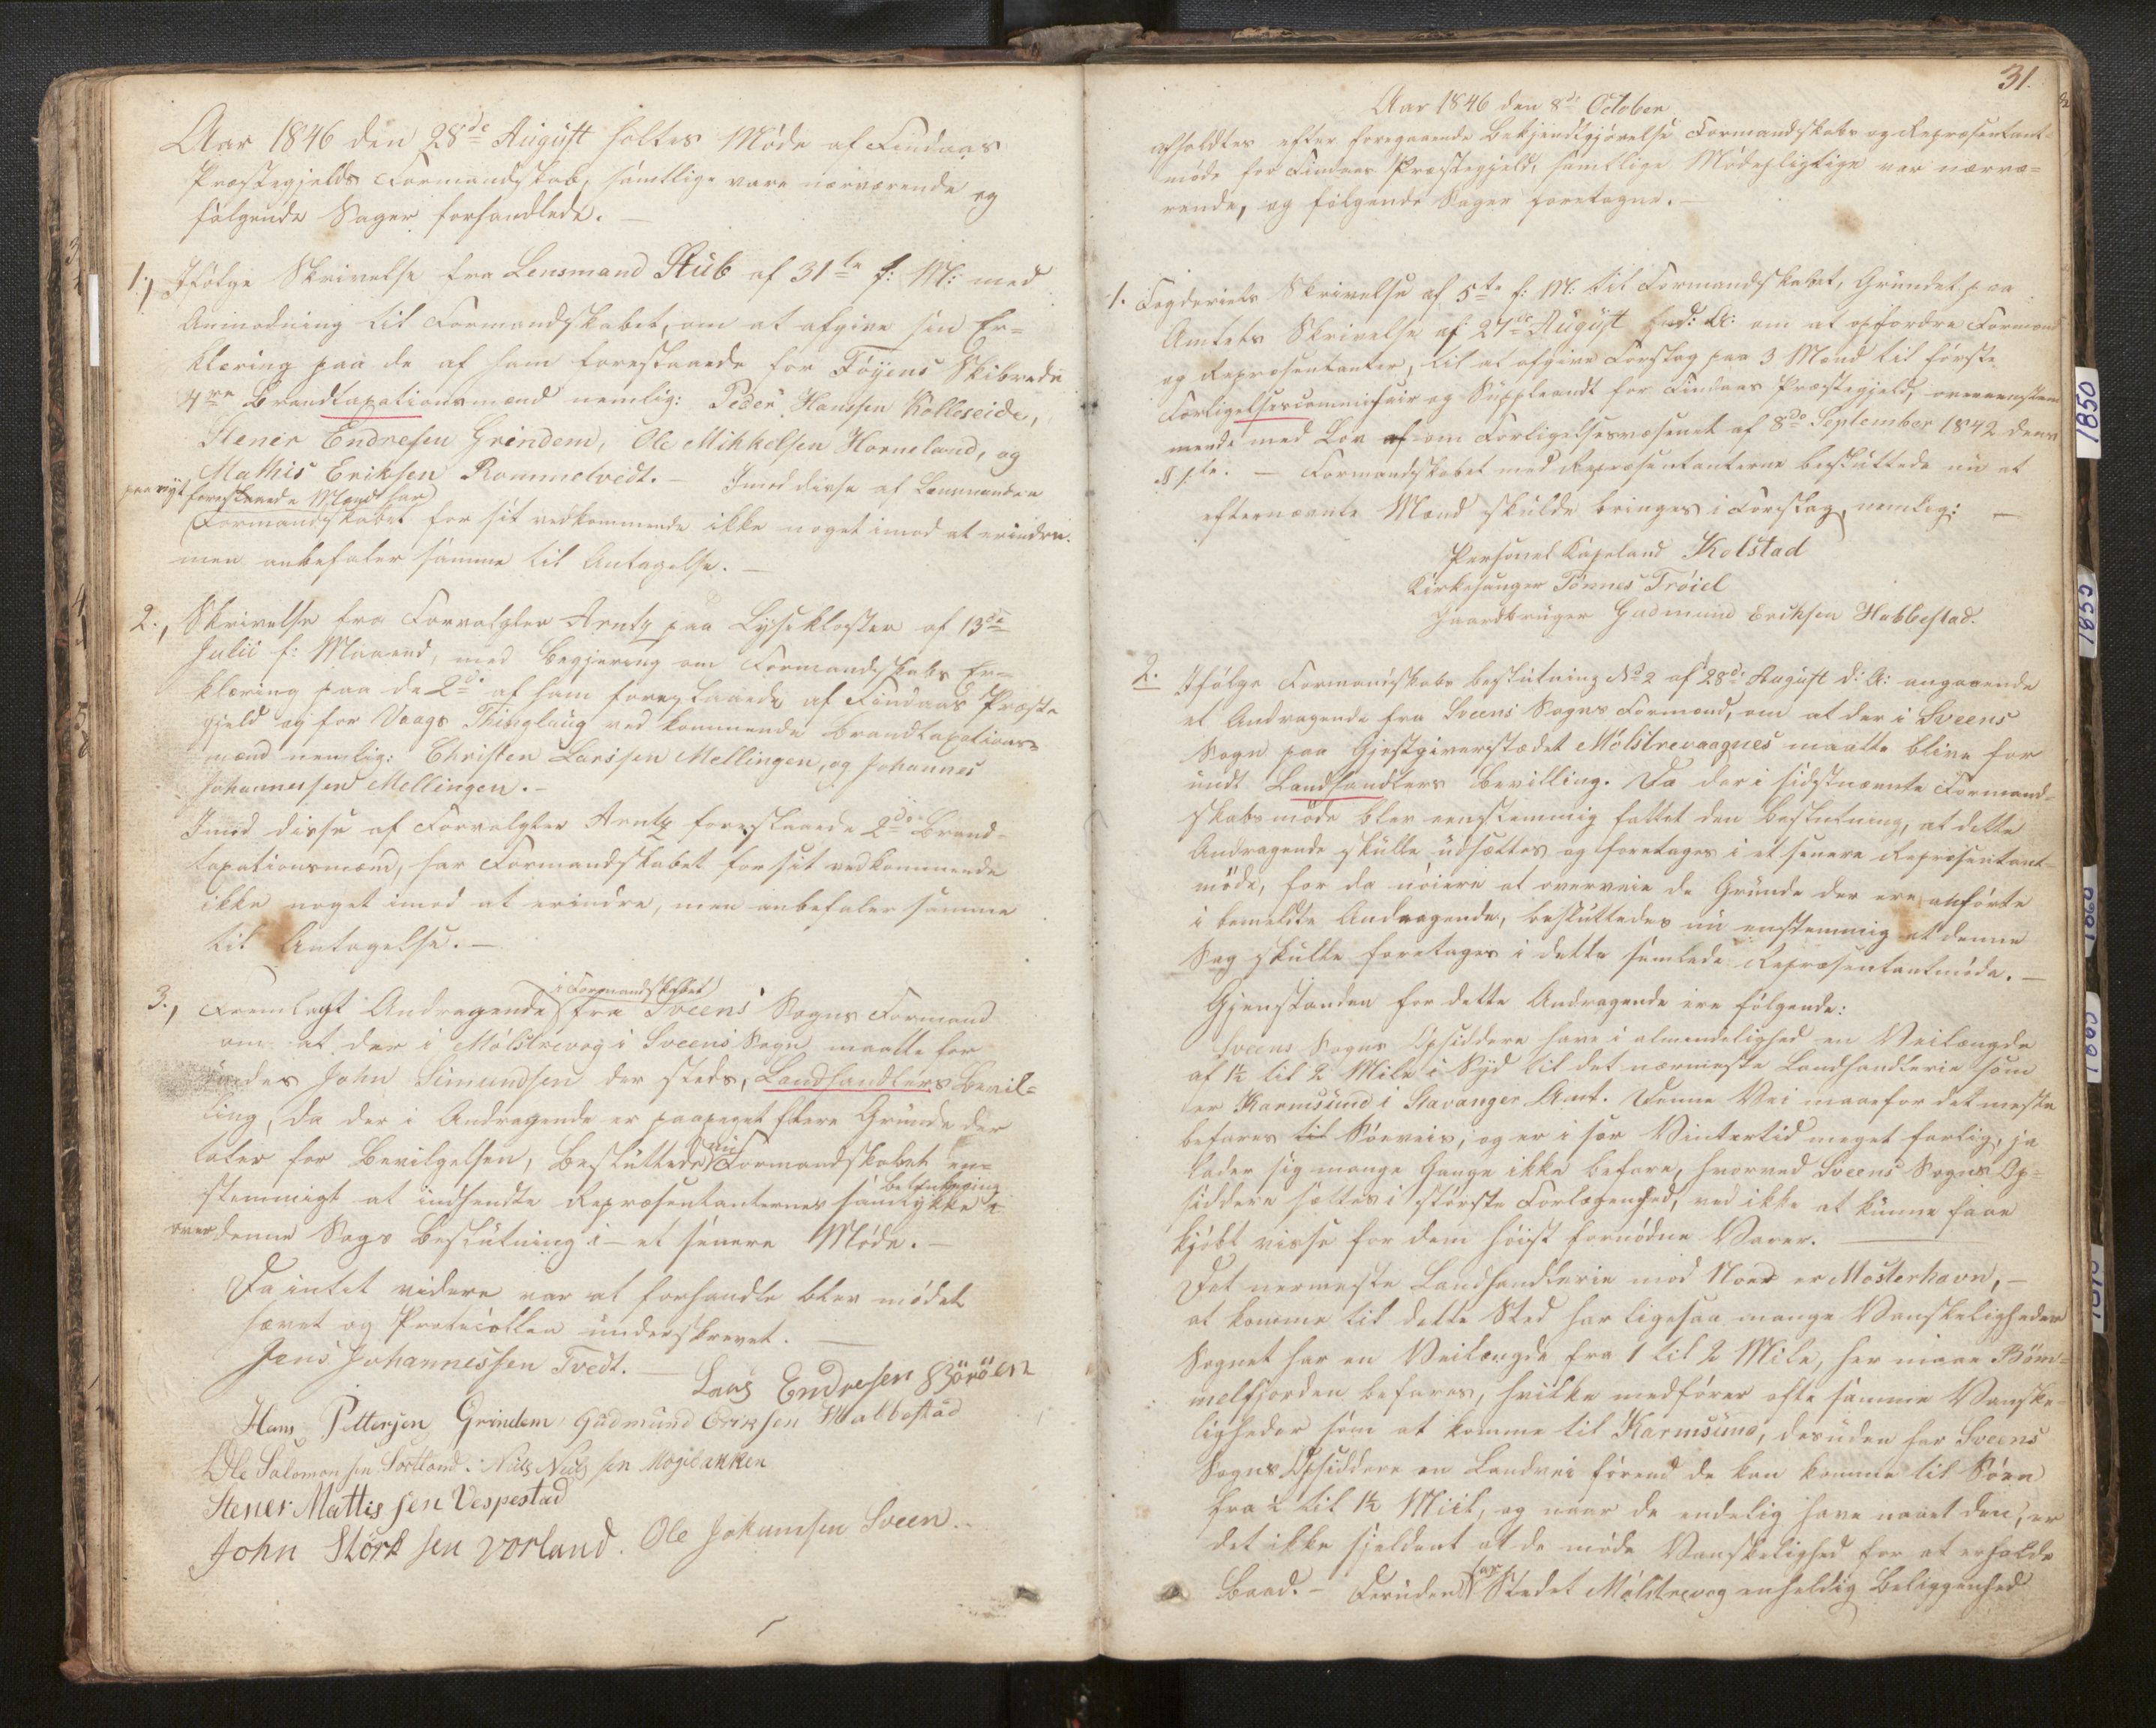 Aar 1846 den 28de August holtes Møde af Findaas
Præstegjelds Formandskab, samtlige vare nærværende og
følgende Sager forhandlede. —
1., Ifølge Skrivelse fra Lensmand Stub af 31te f: M: med
Anmodning til Formandskabet, om at afgive sin Er=
klæring paa de af ham foreslaaede for Føyens Skibrede
4re Brandtaxationsmænd nemlig: Peder Hanssen Kolleseide,
Stener Endresen Grindem, Ole Mikkelsen Horneland, og
Mathis Eriksen Rommetvedt. — Imod disse af Lensmanden
paa nyt foreslaaede Mænd har
Formandskabet for sit vedkommende ikke noget imod at erindre.
men anbefaler samme til Antagelse. —
2., Skrivelse fra Forvalgter Arntz paa Lysekloster af 13de
Julii f: Maaned, med Begjering om Formandskabs Er=
klæring paa de 2de af ham foreslaaede af Findaas Præste
gjeld og for Vaags Thinglaug ved kommende Brandtaxations=
mænd nemlig: Christen Larssen Mellingen, og Johannes
Johannessen Mellingen. -
Imod disse af Forvalgter Arntz foreslaaede 2de Brand=
taxationsmænd, har Formandskabet for sit vedkommende
ikke noget imod at erindre, men anbefaler samme
til Antagelse. —
i Formandskabet
3., Fremlagt Andragende fra Sveens Sogns Formænd
om at der i Mölstrevog i Sveens Sogn maatte for
undes John Simundsen der steds, Landhandlers Bevil=
ling, da der i Andragende er paapeget flere Grunde der
taler for Bevilgelsen, Besluttede nu Formandskabet een=
stemmigt at indhendte Repræsentanternes samtykke
Betænkning
over denne Sags Beslutning i et senere Møde. —
Da intet videre var at forhandle blev mødet
hævet og Protocollen underskrevet. —
Jens Johannessen Tvedt. — Lars Endresen Böröen
Hans Pettersen Grindem Gudmund Eriksen Habbestad
Ole Salomonsen Sortland. Nils Nilssen Møgelbakken
Stener Mattissen Vespestad
John Störksen Vorland. Ole Johannsen Sveen.
31.
Aar 1846 den 8de October
afholdtes efter foregaaende Bekjendtgjørelse Formandskabs og Repræsentant-
møde for Findaas Præstegjeld, samtlige Mødepligtige var nærvæ=
rende, og følgende Sager foretagne. —
1. Fogderiets Skrivelse af 5te f: M: til Formandskabet, Grundet paa
Amtets Skrivelse af 27de August d: A: om at opfordre Formænd
og Repræsentanter, til at afgive Forslag paa 3 Mænd til første
Forligelsescommissair og Suppleandt for Findaas Præstegjeld, overeenstem
mende med Lov om Forligelsesvæsenet af 8de September 1842 dens
§ 1te. — Formandskabet med Repræsentanterne besluttede nu at
efternævnte Mænd skulde bringes i Forslag, nemlig: —
Personel Kapeland Kolstad
Kirkesanger Tönnes Tröiel
Gaardbruger Gudmund Eriksen Habbestad.
2. Ifølge Formandskabs beslutning No 2 af 28de August d: A: angaaende
et Andragende fra Sveens Sogns Formænd, om at der i Sveens
Sogn paa Gjestgiverstædet Mölstrevaagnes maatte blive for
undt Landhandlers Bevilling. Da der i sidstnævnte Formand=
skabsmøde blev eenstemmig fattet den Beslutning, at dette
Andragende skulle udsættes og foretages i et senere Repræsentant-
møde, for da nöiere at overveie de Grunde der ere anförte
i bemeldte Andragende, besluttedes nu enstemmig at denne
Sag skulle foretages i dette samlede Repræsentantmøde. —
Gjenstanden for dette Andragende ere følgende:
Sveens Sogns Opsiddere have i almendelighed en Veilængde
af 1½ til 2 Mile i Syd til det nærmeste Landhandlerie som
er Karmsund i Stavanger Amt. Denne Vei maae for det meste
befares til Söeveis, og er i sær Vintertid meget farlig, ja
lader sig mange Gange ikke befare, hvorved Sveens Sogns Op=
siddere sættes i største Forlægenhed, ved ikke at kunne faae
kjöbt visse for dem höist fornödne Varer. —
Det nermeste Landhandlerie mod Nord er Mosterhavn, —
at komme til dette Sted har ligesaa mange Vanskeligheder
Sognet har en Veilængde fra 1 til 2 Mile, her maae Böm=
melfjorden befares, hvilke medfører ofte samme Vanske=
ligheder som at komme til Karmsund, desuden har Sveens
Sogns Opsiddere en Landvei förend de kan komme til Söen
fra ½ til 1½ Miil, og naar de endelig have naaet den, er
det ikke sjeldent at de møde Vanskelighed for at erholde
Baad. — Desuden har Stedet Mölstrevog en heldig Beliggenhed
1850
1855
1860
1865
1870